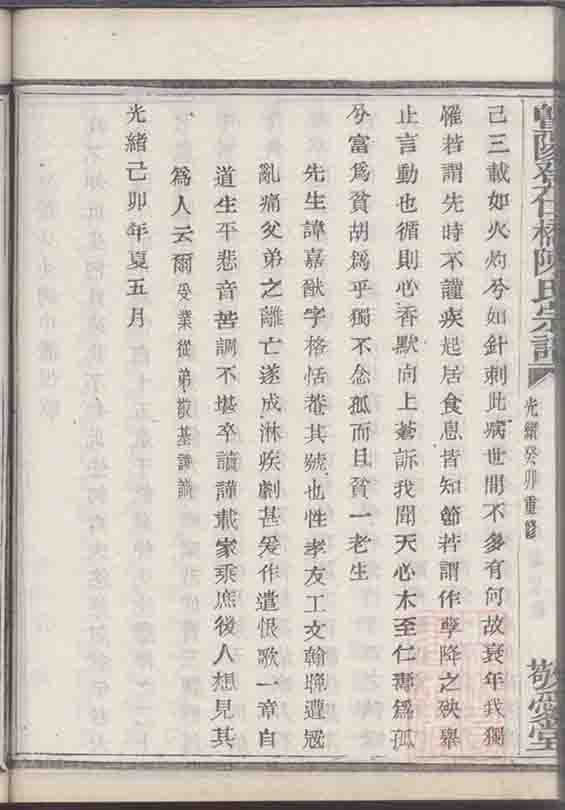 暨陽登仕橋陳氏宗譜
光緒癸卯重修
敬愛堂
己三載如火灼兮如針刺此病世間不多有何故衰年我獨
罹若謂先時不謹疾起居食息皆知節若謂作孽降之殃舉
止言動也循則心香默向上蒼訴我聞天心本至仁壽爲孤
兮富爲貧胡爲乎獨不念孤而且貧一老生
先生諱嘉猷字格恬菴其號也性孝友工文翰晚遭寇
亂痛父弟之離亡遂成淋疾劇甚爰作遣恨歌一章自
道生平悲音苦調不堪卒讀謹載家乘庶後人想見其
爲人云爾受業從弟敬基謹識
光緒己卯年夏五月